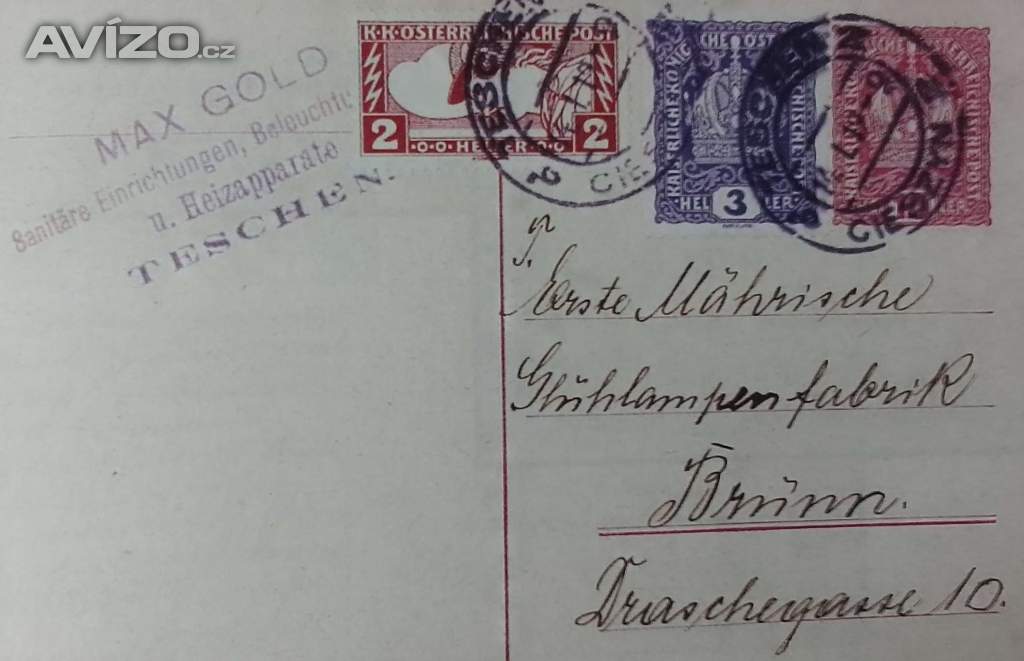 AVÍZO.cz
MAX GOLD
Sanitäre Einrichtungen, Beleucht
u. Heizapparate
TESCHEN.
K.K. ÖSTERREICHISCHE POST
2 2
HELLER
KAISERLICHE KÖNIG CHE ÖSTERREICHISCHE POST
HEL 3 LER
TESCHEN
CIESZYN
P.
Erste Mährische
Glühlampenfabrik
Brünn.
Draschegasse 10.